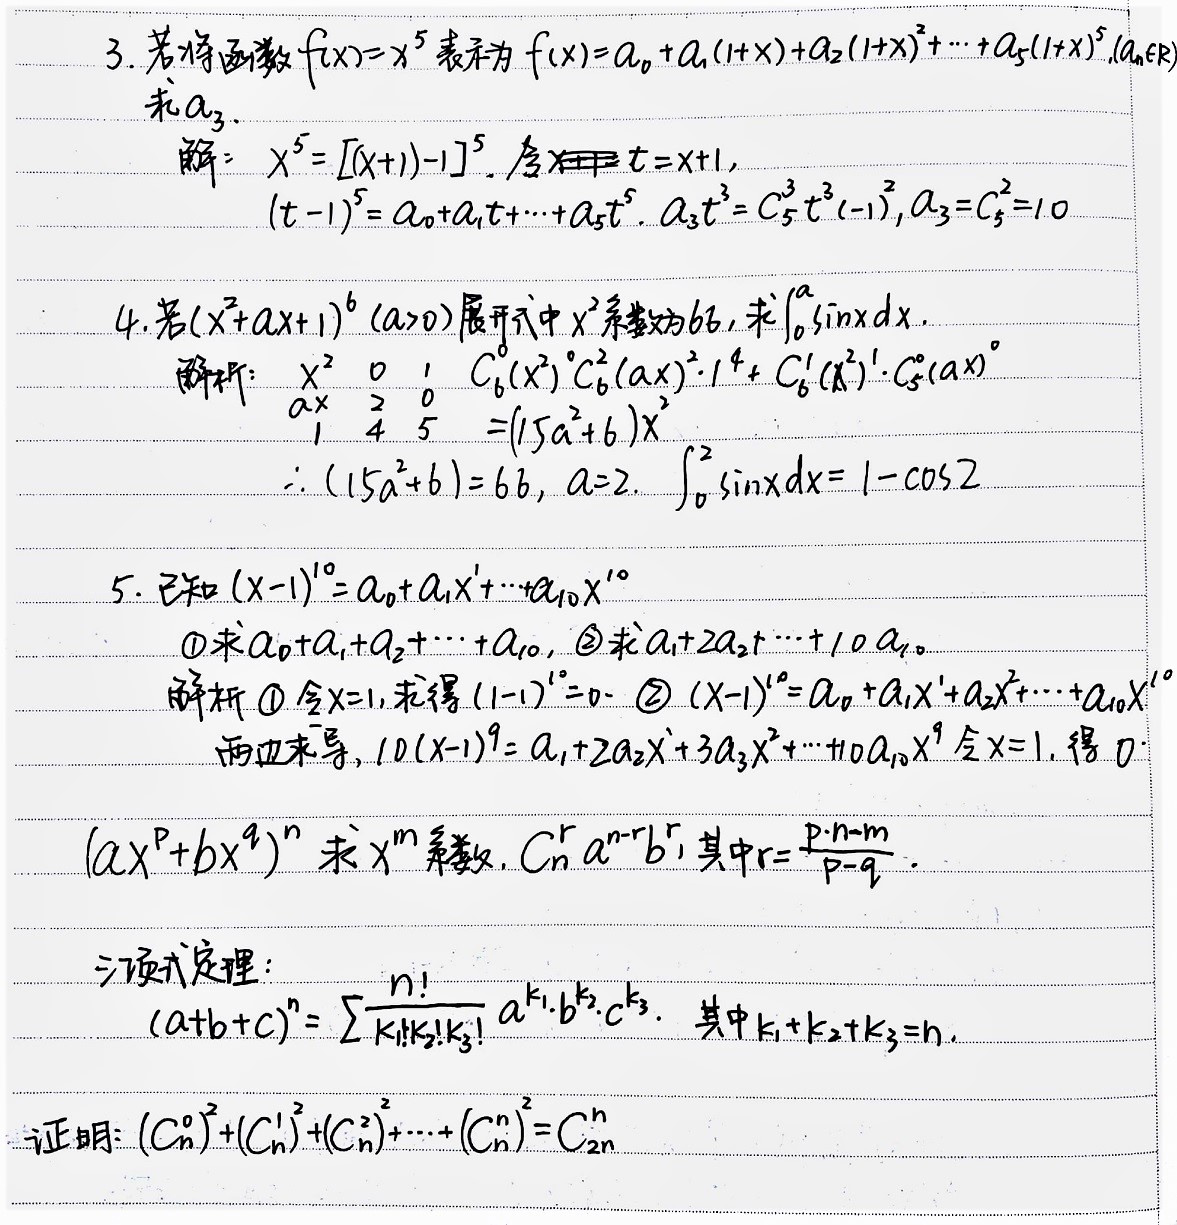 3. 若将函数f(x)=x⁵表示为 f(x)=a₀+a₁(1+x)+a₂(1+x)²+…+a₅(1+x)⁵,(aₙ∈R)
求a₃.
解: x⁵=[(x+1)-1]⁵. 令 t=x+1,
(t-1)⁵=a₀+a₁t+…+a₅t⁵. a₃t³=C₅³t³(-1)², a₃=C₅²=10
4. 若(x²+ax+1)⁶ (a>0)展开式中x²系数为66, 求∫₀ᵃsinxdx.
解析: x² 0 1 C₆⁰(x²)⁰C₆²(ax)²·1⁴+C₆¹(x²)¹·C₅⁰(ax)⁰
ax 2 0
1 4 5 =(15a²+6)x²
∴(15a²+6)=66, a=2. ∫₀²sinxdx=1-cos2
5. 已知(x-1)¹⁰=a₀+a₁x¹+…+a₁₀x¹⁰
①求a₀+a₁+a₂+…+a₁₀, ②求a₁+2a₂+…+10a₁₀
解析 ①令x=1, 求得(1-1)¹⁰=0. ②(x-1)¹⁰=a₀+a₁x¹+a₂x²+…+a₁₀x¹⁰
两边求导, 10(x-1)⁹=a₁+2a₂x¹+3a₃x²+…+10a₁₀x⁹ 令x=1, 得0.
(axᵖ+bx^q)ⁿ 求xᵐ系数. Cₙʳaⁿ⁻ʳbʳ, 其中r=(p·n-m)/(p-q).
三项式定理:
(a+b+c)ⁿ=∑n!/(k₁!k₂!k₃!) a^k₁·b^k₂·c^k₃. 其中k₁+k₂+k₃=n.
证明: (Cₙ⁰)²+(Cₙ¹)²+(Cₙ²)²+…+(Cₙⁿ)²=C₂ₙⁿ